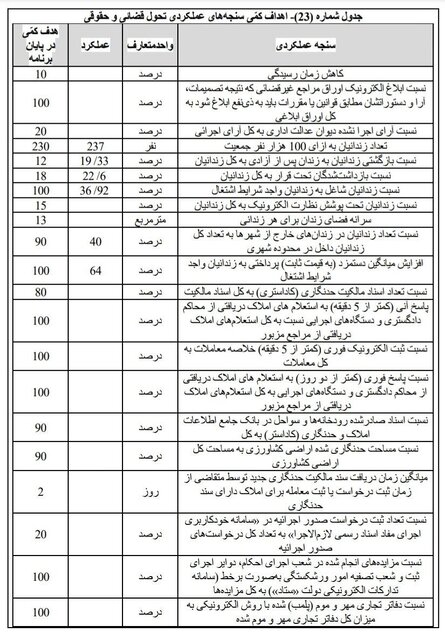 جدول شماره (23)- اهداف کمّی سنجه‌های عملکردی تحول قضائی و حقوقی
سنجه عملکردی
واحدمتعارف
عملکرد
هدف کمّی
در پایان
برنامه
کاهش زمان رسیدگی
درصد
10
نسبت ابلاغ الکترونیک اوراق مراجع غیرقضائی که نتیجه تصمیمات،
آرا و دستوراتشان مطابق قوانین یا مقررات باید به ذی‌نفع ابلاغ شود به
کل اوراق ابلاغی
درصد
100
نسبت آرای اجرا نشده دیوان عدالت اداری به کل آرای اجرائی
درصد
20
تعداد زندانیان به ازای 100 هزار نفر جمعیت
نفر
237
230
نسبت بازگشتی زندانیان به زندان پس از آزادی به کل زندانیان
درصد
19/33
12
نسبت بازداشت‌شدگان تحت قرار به کل زندانیان
درصد
22/6
18
نسبت زندانیان شاغل به زندانیان واجد شرایط اشتغال
درصد
36/92
100
نسبت زندانیان تحت پوشش نظارت الکترونیک به کل زندانیان
درصد
15
سرانه فضای زندان برای هر زندانی
مترمربع
13
نسبت تعداد زندانیان در زندان‌های خارج از شهرها به تعداد کل
زندانیان داخل در محدوده شهری
درصد
40
90
افزایش میانگین دستمزد (به قیمت ثابت) پرداختی به زندانیان واجد
شرایط اشتغال
درصد
64
100
نسبت تعداد اسناد مالکیت حدنگاری (کاداستری) به کل اسناد مالکیت
درصد
80
پاسخ آنی (کمتر از 5 دقیقه) به استعلام های املاک دریافتی از محاکم
دادگستری و دستگاه‌های اجرایی نسبت به کل استعلام‌های املاک
دریافتی از مراجع مزبور
درصد
100
نسبت ثبت الکترونیک فوری (کمتر از 5 دقیقه) خلاصه معاملات به
کل معاملات
درصد
100
نسبت پاسخ فوری (کمتر از دو روز) به استعلام های املاک دریافتی
از محاکم دادگستری و دستگاه‌های اجرایی به کل استعلام‌های املاک
دریافتی از مراجع مزبور
درصد
100
نسبت اسناد صادرشده رودخانه‌ها و سواحل در بانک جامع اطلاعات
املاک و حدنگاری (کاداستر) به کل
درصد
90
نسبت مساحت حدنگاری شده اراضی کشاورزی به مساحت کل
اراضی کشاورزی
درصد
90
میانگین زمان دریافت سند مالکیت حدنگاری جدید توسط متقاضی از
زمان ثبت درخواست یا ثبت معامله برای املاک دارای سند
حدنگاری
روز
2
نسبت تعداد ثبت درخواست صدور اجرائیه در «سامانه خودکاربری
اجرای مفاد اسناد رسمی لازم‌الاجرا» به تعداد کل درخواست‌های
صدور اجرائیه
درصد
20
نسبت مزایده‌های انجام شده در شعب اجرای احکام، دوایر اجرای
ثبت و شعب تصفیه امور ورشکستگی به‌صورت برخط (سامانه
تدارکات الکترونیکی دولت «ستاد») به کل مزایده‌ها
درصد
100
نسبت دفاتر تجاری مهر و موم (پلمب) شده با روش الکترونیکی به
میزان کل دفاتر تجاری مهر و موم شده
درصد
100